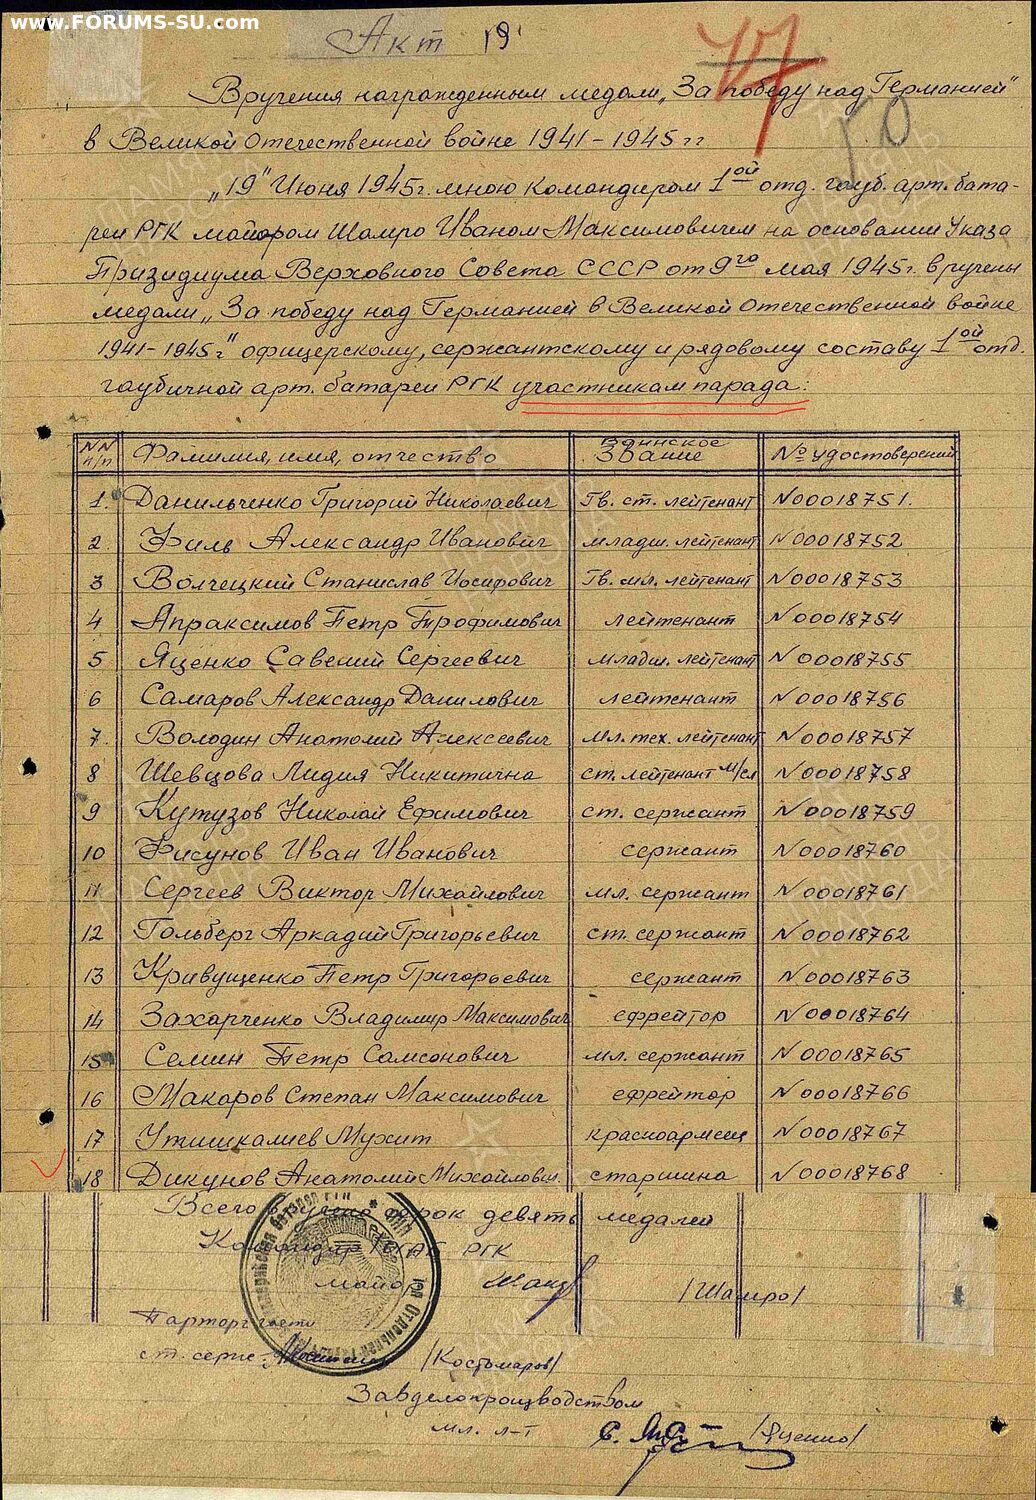 www.FORUMS-SU.com
Акт 19
47
50
Вручения награжденным медали „За победу над Германией"
в Великой Отечественной войне 1941-1945 гг
„19" Июня 1945г. мною командиром 1ой отд. гауб. арт. бата-
реи РГК майором Шамро Иваном Максимовичем на основании Указа
Призидиума Верховного Совета СССР от 9го мая 1945г. вручены
медали „За победу над Германией в Великой Отечественной войне
1941-1945г" офицерскому, сержантскому и рядовому составу 1ой отд.
гаубичной арт. батареи РГК участникам парада:
NN п/п Фамилия, имя, отчество Воинское звание №удостоверений
1. Данильченко Григорий Николаевич Гв. ст. лейтенант N00018751.
2. Филь Александр Иванович младш. лейтенант N00018752
3 Волчецкий Станислав Иосифович Гв. мл. лейтенант N00018753
4 Апраксимов Петр Трофимович лейтенант N00018754
5 Яценко Савелий Сергеевич младш. лейтенант N00018755
6 Самаров Александр Данилович лейтенант N00018756
7. Володин Анатолий Алексеевич мл. тех. лейтенант N00018757
8 Шевцова Лидия Никитична ст. лейтенант м/сл N00018758
9 Кутузов Николай Ефимович ст. сержант N00018759
10 Фисунов Иван Иванович сержант N00018760
11 Сергеев Виктор Михайлович мл. сержант N00018761
12 Гольберг Аркадий Григорьевич ст. сержант N00018762
13 Кривущенко Петр Григорьевич сержант N00018763
14 Захарченко Владимир Максимович ефрейтор N00018764
15 Семин Петр Самсонович мл. сержант N00018765
16 Макаров Степан Максимович ефрейтор N00018766
17 Утишкалиев Мухит красноармеец N00018767
18 Дикунов Анатолий Михайлович. старшина N00018768
Всего вручено сорок девять медалей
Командир РГК
майор /Шамро/
Парторг части
ст. серж. /Костомаров/
Завделопроизводством
мл. л-т /Яценко/